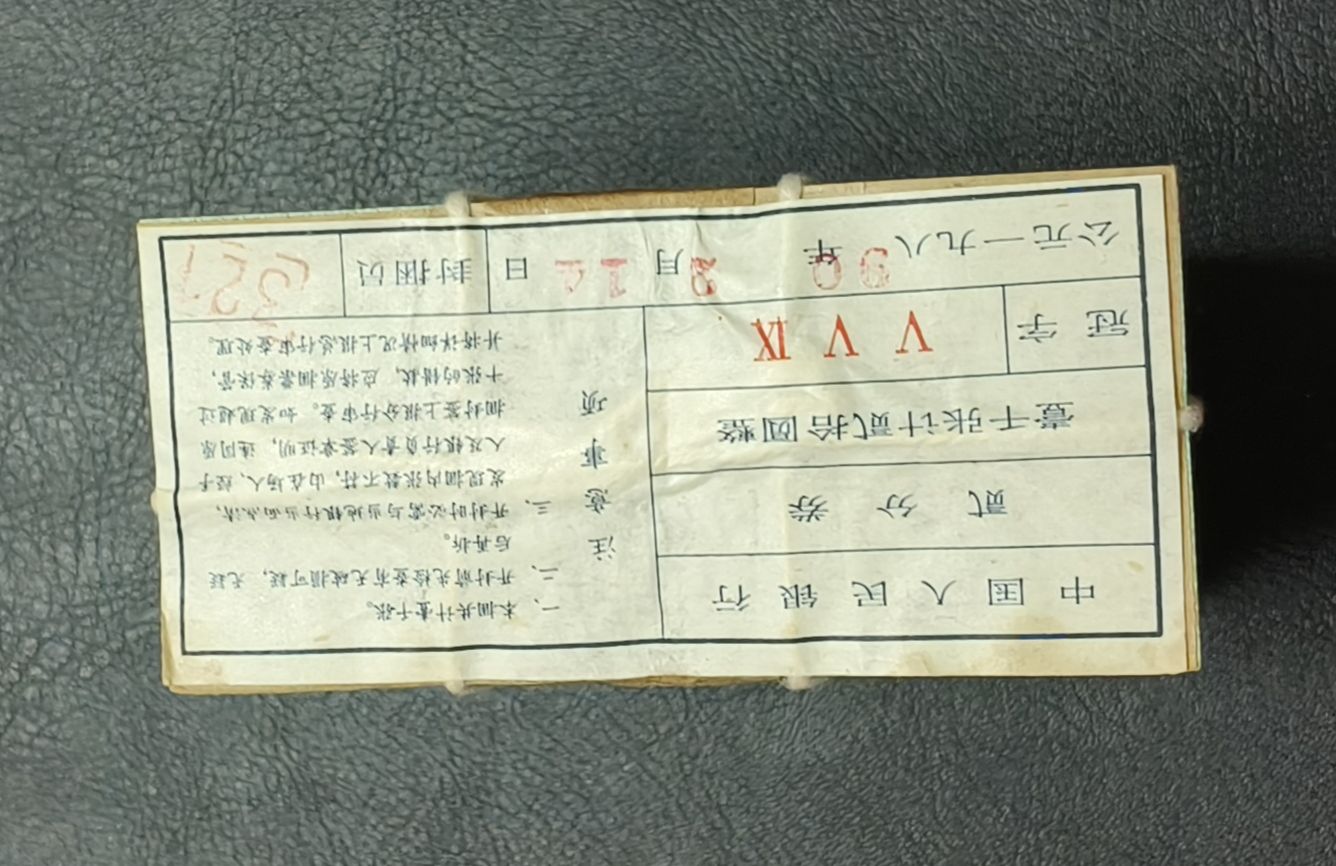 中国人民银行
贰分券
壹千张计贰拾圆整
冠字 V V IX
公元一九八 年 月 日 封捆员
注意事项
一、本捆共计壹千张。
二、开封前先检查有无破损可疑，无疑
后再拆。
三、开封时必需与当地银行当面点清，
发现捆内张数不符，由在场人、经手
人及银行负责人签章证明，连同原
捆封签上报分行审查。如发现超过
十张的错款，应将原捆票券保管，
并将详细情况上报总行审查处理。